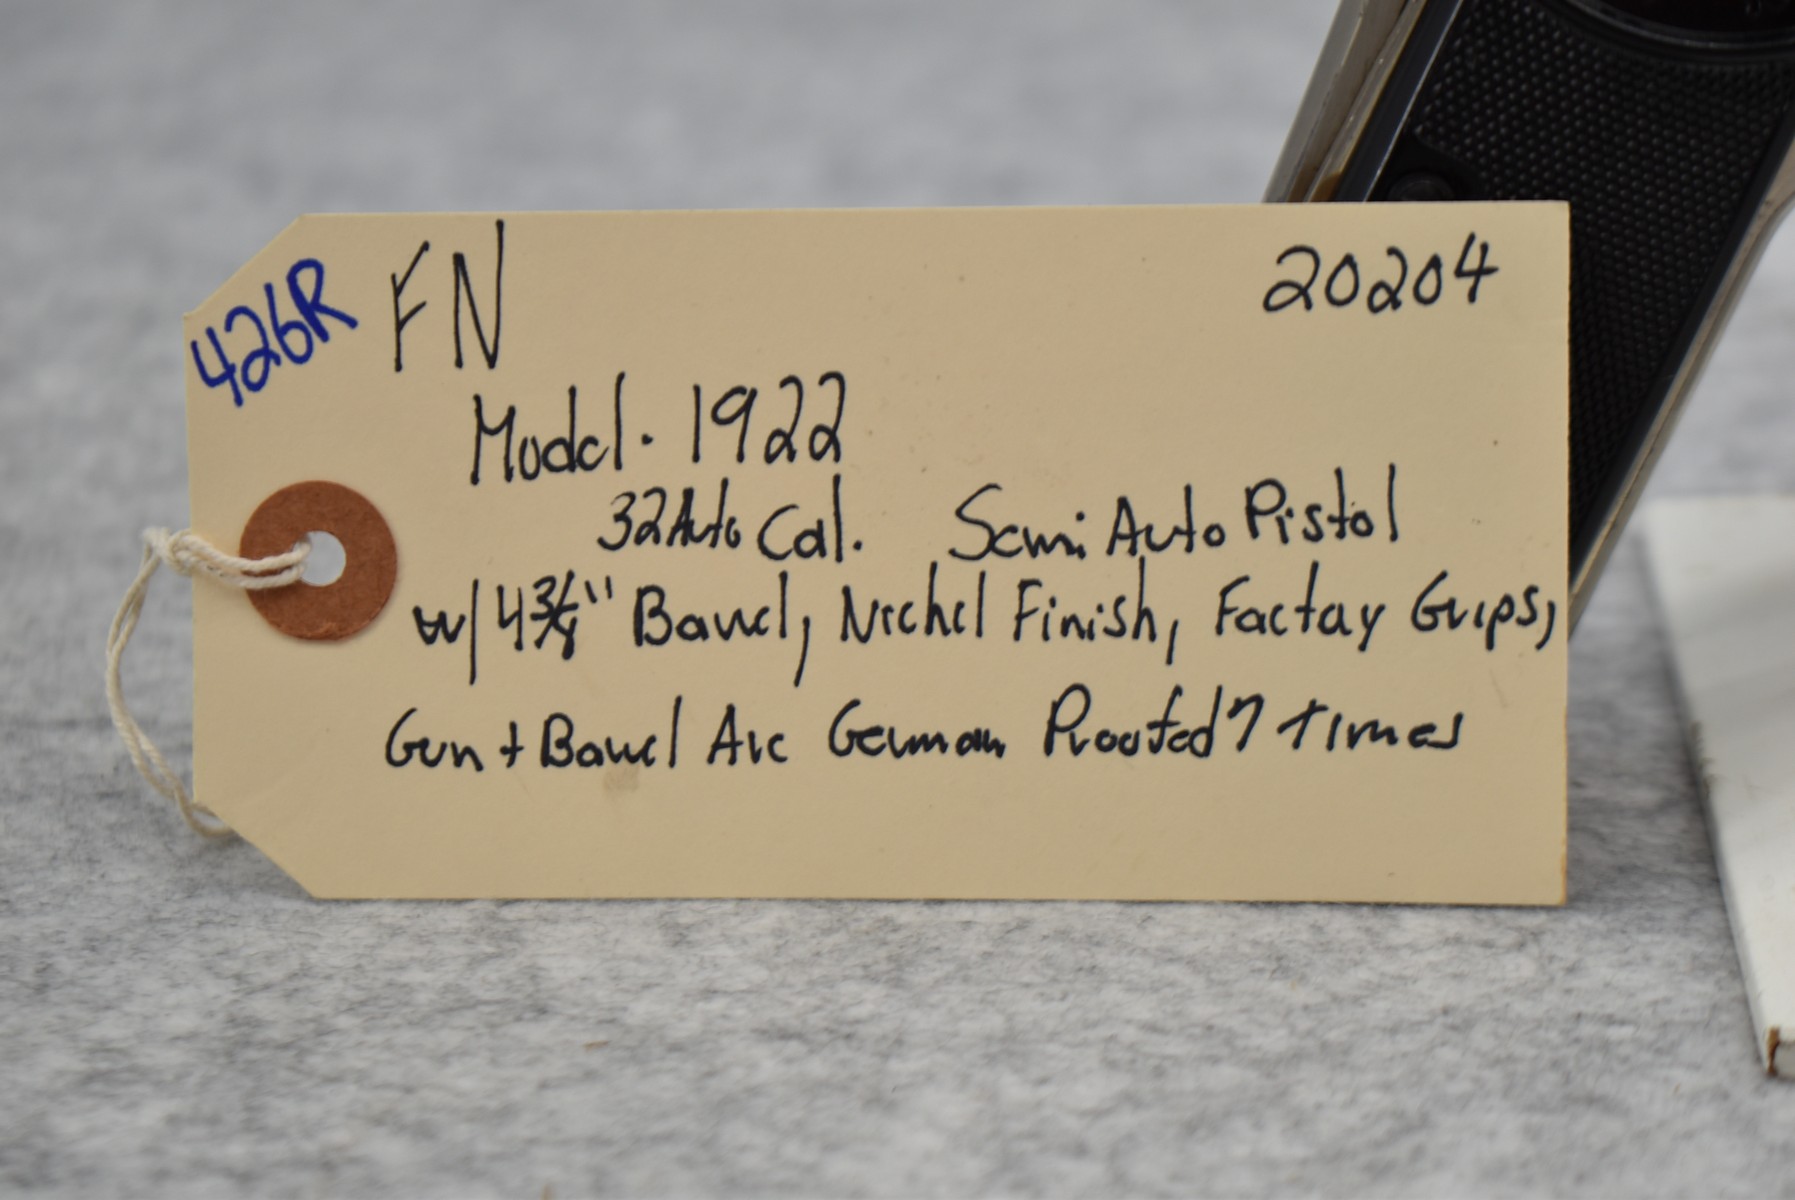 426R FN 20204
Model. 1922
32 Auto Cal. Semi Auto Pistol
w/ 4 3/4" Barrel, Nickel Finish, Factory Grips,
Gun + Barrel Are German Proofed 7 Times